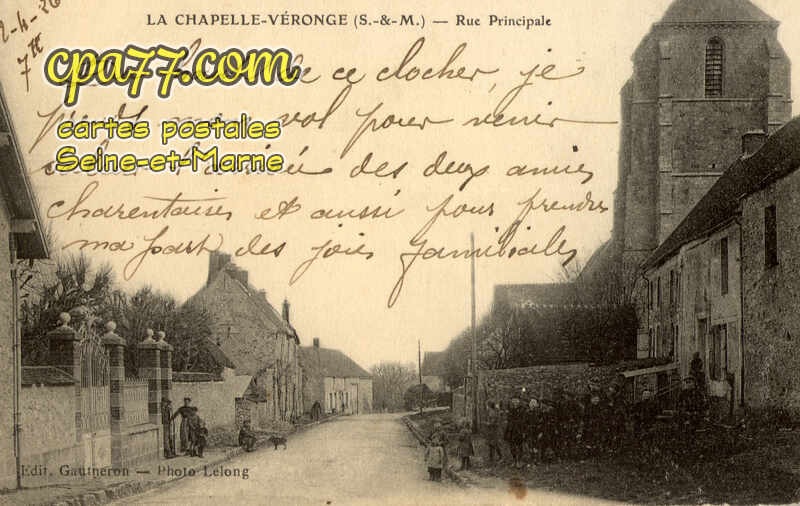 LA CHAPELLE-VÉRONGE (S.-&-M.) — Rue Principale
2-4-20
7H
cpa77.com
ce clocher, je
vol pour venir
cartes postales
Seine-et-Marne
des deux amies
charentaises et aussi pour prendre
ma part des joies familiales
Edit. Gautheron — Photo Lelong